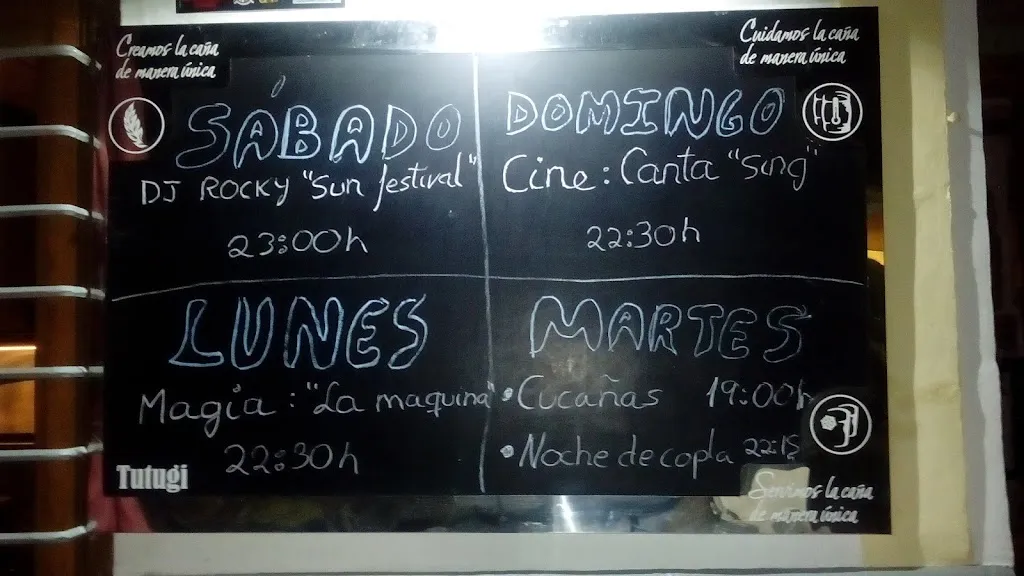 Creamos la caña
de manera única
Cuidamos la caña
de manera única
SÁBADO
DJ ROCKY "Sun festival"
23:00h
DOMINGO
Cine: Canta "Sing"
22:30h
LUNES
Magia: "La maquina"
22:30h
MARTES
• Cucañas 19:00h
• Noche de copla 22:15
Tutugi
Servimos la caña
de manera única